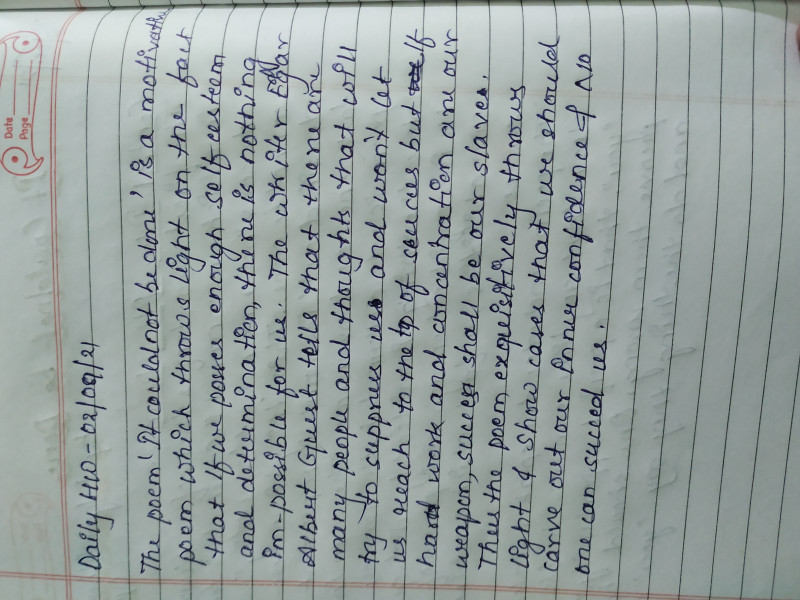 Date
Page
Daily HW - 02/09/21
The poem 'It could not be done' is a motivative
poem which throws light on the fact
that if we posses enough self esteem
and determination, there is nothing
im-possible for us. The whiter Edgar
Albert Guest tells that there are
many people and thoughts that will
try to suppress us and won't let
us reach to the top of success but if
hard work and concentration are our
weapon, success shall be our slaves.
Thus the poem exquisitively throws
light & show cases that we should
carve out our inner confidence & No
one can succeed us.